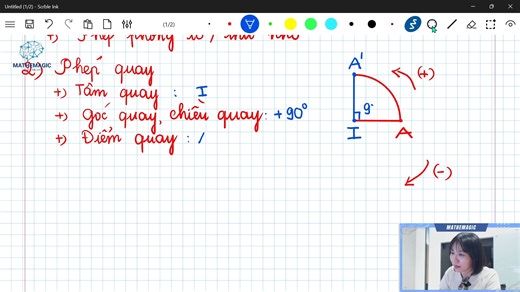 Untitled (1/2) - Sofble Ink
(1/2)
+) Phép phóng to / thu nhỏ
MATHEMAGIC
2) Phép quay
+) Tâm quay : I
+) Góc quay, chiều quay : +90°
+) Điểm quay :
A'
(+)
9
I
A
(-)
MATHEMAGIC